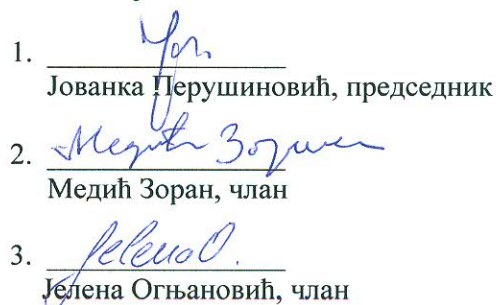 1.
Јованка Перушиновић, председник
2. Медић Зоран
Медић Зоран, члан
3. Jelena O.
Јелена Огњановић, члан